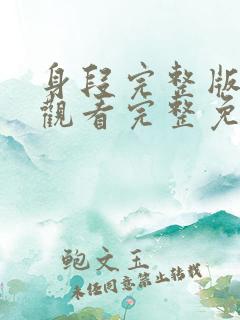 身段完整版
觀看完整免
鲍文玉
未经同意禁止转载